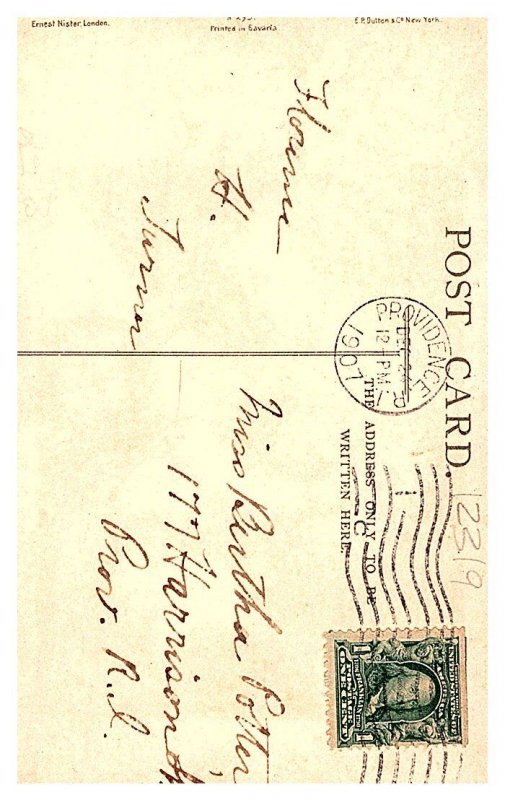 Ernest Nister, London.
Printed in Bavaria
E.P. Dutton & Co New York.
POST CARD.
THE ADDRESS ONLY TO BE
WRITTEN HERE
Florence
H.
Turner
PROVIDENCE
12-PM
R.I.
1907
C
12319
Miss Bertha Potter
177 Harrison St
Prov. R.I.
ONE CENT